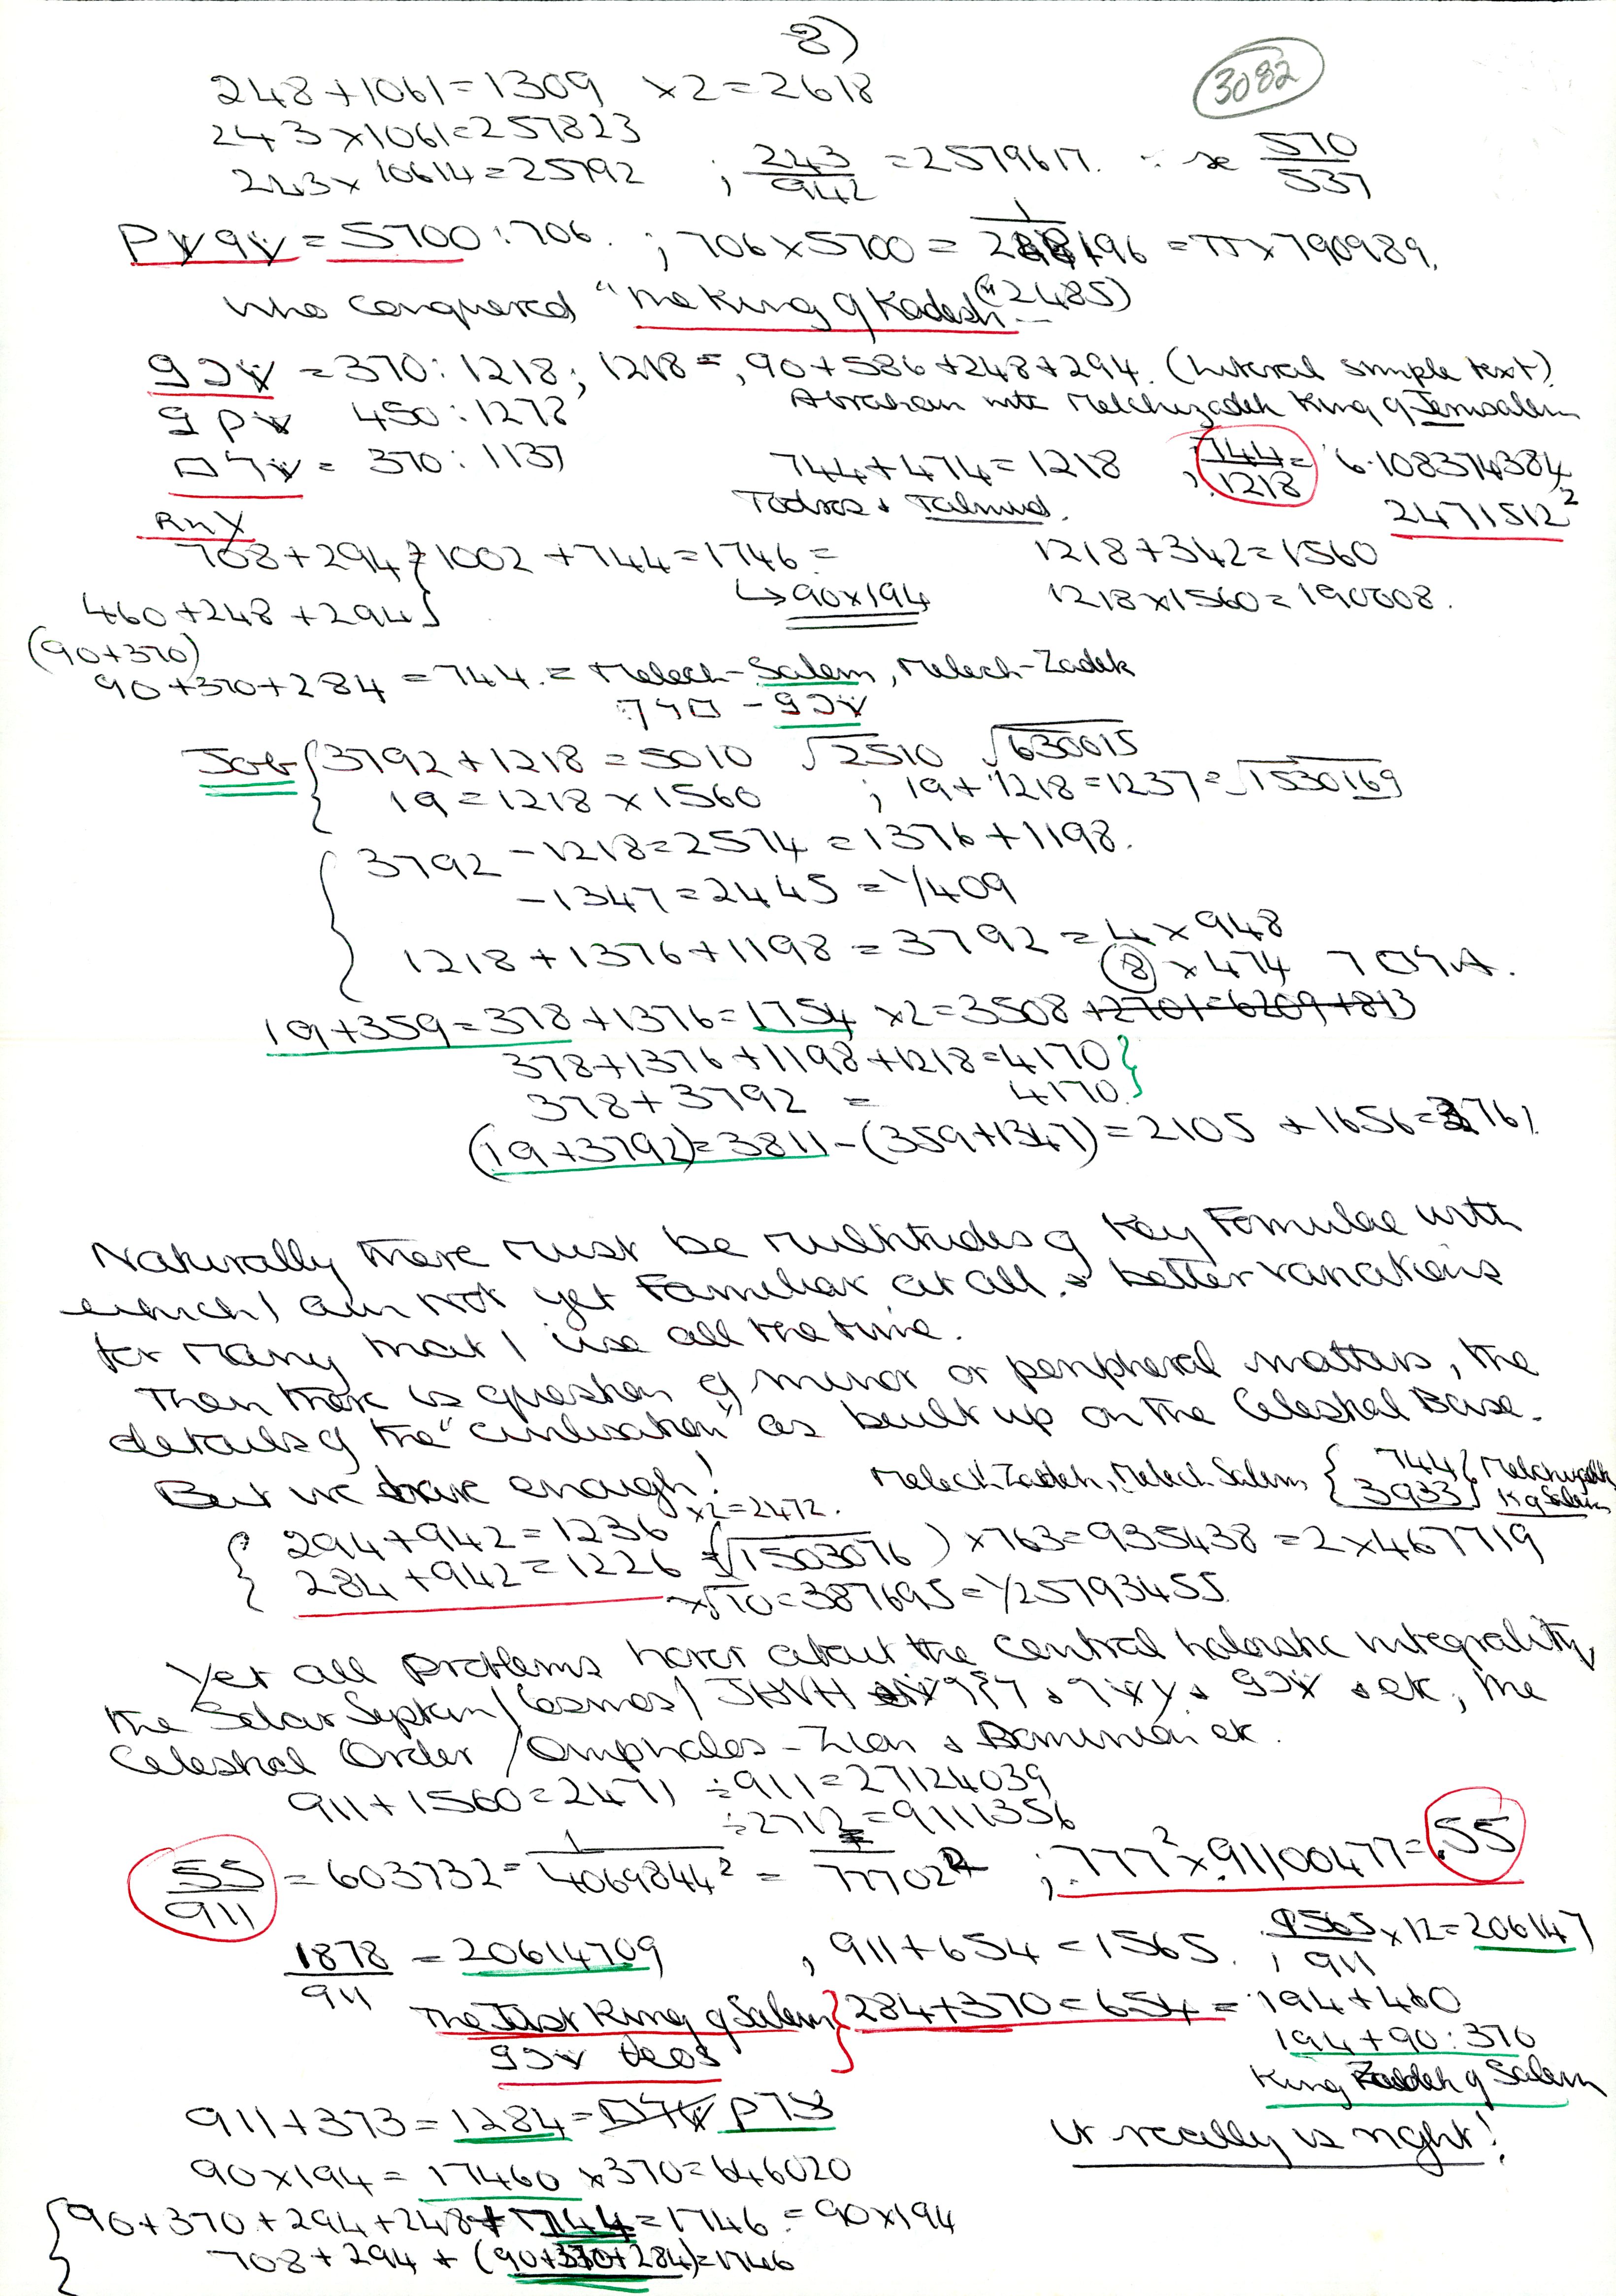 8)
3082
248+1061=1309 ×2=2618
243×1061=257823
243×10614=25792 ; 243/942 =2579617. 570/537
=5700:706. ; 706×5700= =π×790989.
who conquered "The King of Kadesh" (2485)
=370:1218; 1218=, 90+586+248+294. (Literal simple text)
450:1278 Abraham with Melchizadek King of Jerusalem
= 370:1137 744+474=1218 ; 744/.1218= 6.108374384
Todros + Talmud. 2471512²
708+294 =1002+744=1746= 1218+342=1560
↳90×194 1218×1560=190008.
460+248+294
(90+370)
90+370+284=744.= Melech-Salem, Melech-Zadek
Job 3792+1218=5010 √2510 √630015
19=1218×1560 ; 19+1218=1237=√1530169
3792-1218=2574=1376+1198.
-1347=2445=1/409
1218+1376+1198=3792=4×948
8×474
19+359=378+1376=1754×2=3508+2701=6209+813
378+1376+1198+1218=4170
378+3792 = 4170.
(19+3792)=3811-(359+1347)=2105+1656=3761
Naturally there must be multitudes of key Formulae with
which I am not yet Familiar at all & better variations
for many that I use all the time.
Then there is question of minor or peripheral matters, the
details of the "civilisation" as built up on the Celestial Base.
But we have enough! Melech Zadek, Melech Salem { 744 } Melchizadek
3933 K of Salem
294+942=1236 ×2=2472.
284+942=1226 (√1503076)×763=935438=2×467719
×√10=387695=1/25793455
Yet all problems hover about the central holistic integrality,
the Solar System/Cosmos/JHVH & & etc, the
Celestial Order/Omphalos-Zion & Dominion etc.
911+1560=2471 ÷911=27124039
÷2712=9111356
55/911 =603732=1/4069844²= 777022 ; .777²×.91100477=.55
1878/911 =20614709 , 911+654=1565. ; 1565/911 ×12=206147
The Just King of Salem } 284+370=654=194+460
194+90:370
King Zadek of Salem
911+373=1284=
It really is right!
90×194=17460×370=646020
90+370+294+248+744=1746=90×194
708+294+(90+370+284)=1746